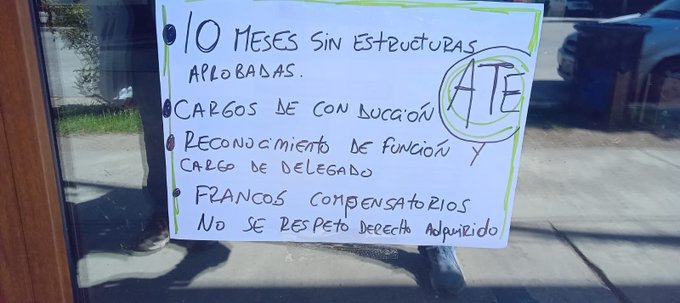 10 MESES SIN ESTRUCTURAS
APROBADAS.
ATE
CARGOS DE CONDUCCIÓN
RECONOCIMIENTO DE FUNCIÓN Y
CARGO DE DELEGADO
FRANCOS COMPENSATORIOS
NO SE RESPETO DERECHO ADQUIRIDO